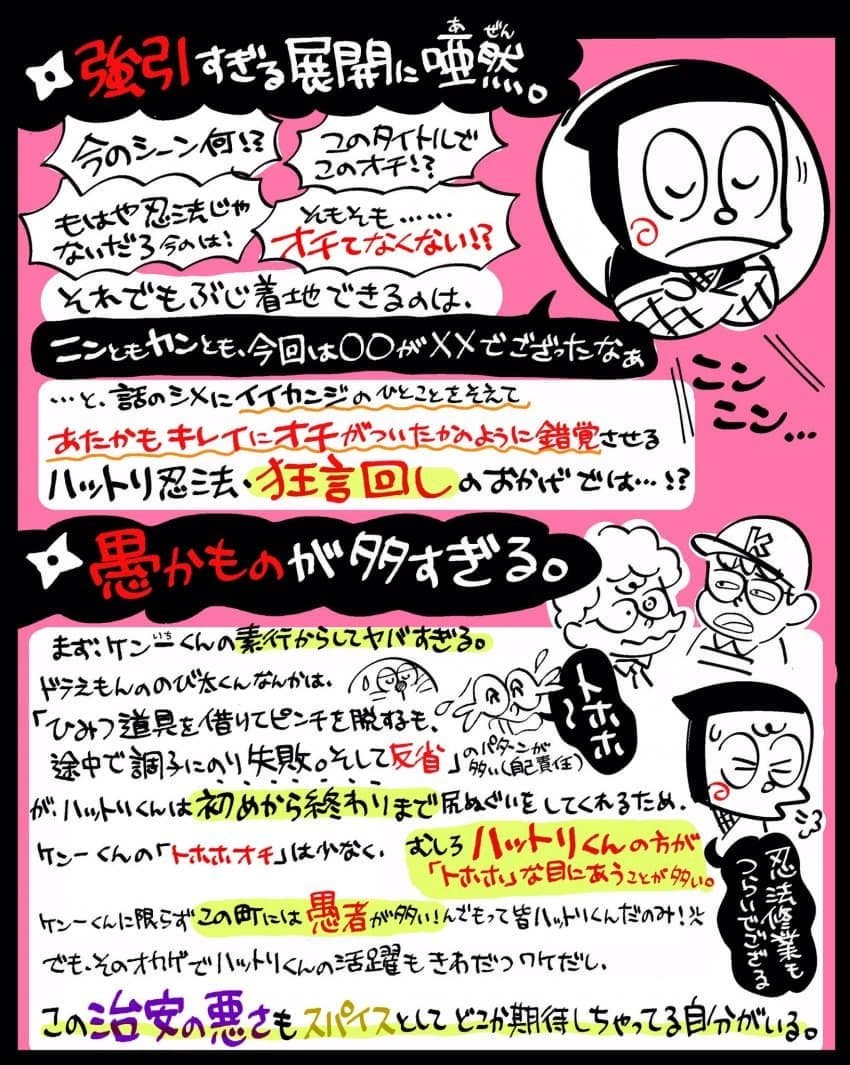 強引すぎる展開に唖然。
あ ぜん
今のシーン何!?
このタイトルで
このオチ!?
もはや忍法じゃ
ないだろ今のは!
そもそも……
オチてなくない!?
それでもぶじ着地できるのは、
ニンともカンとも、今回は〇〇が××でござったなぁ
ニン
ニン…
…と、話のシメにイイカンジのひとことをそえて
あたかもキレイにオチがついたかのように錯覚させる
ハットリ忍法・狂言回しのおかげでは…!?
愚かものが多すぎる。
K
まず、ケン一くんの素行からしてヤバすぎる。
いち
ドラえもんののび太くんなんかは、
「ひみつ道具を借りてピンチを脱するも、
途中で調子にのり失敗。そして反省」のパターンが
多い(自己責任)
トホホ〜
が、ハットリくんは初めから終わりまで尻ぬぐいをしてくれるため、
ケン一くんの「トホホオチ」は少なく、むしろハットリくんの方が
「トホホ」な目にあうことが多い。
忍法修業も
つらいでござる
ケン一くんに限らずこの町には愚者が多い!んでもって皆ハットリくんだのみ!
でも、そのオカゲでハットリくんの活躍もきわだつワケだし、
この治安の悪さもスパイスとしてどこか期待しちゃってる自分がいる。